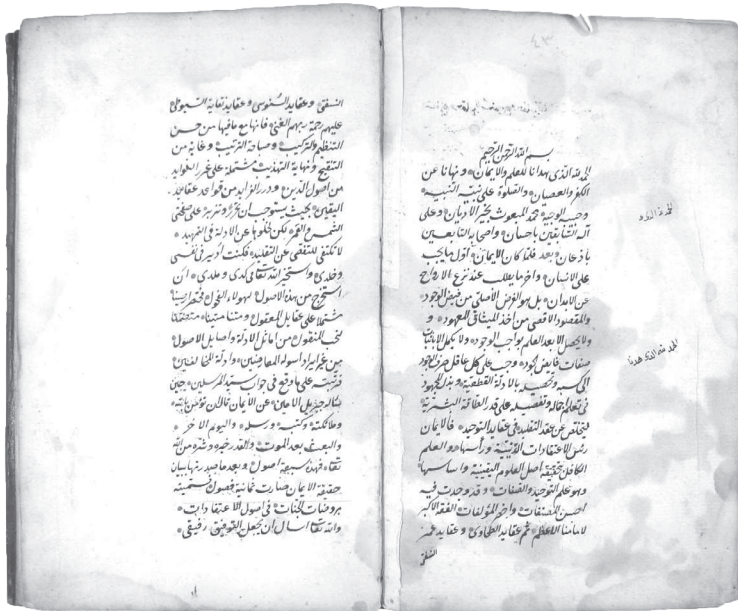 بسم الله الرحمن الرحيم
الحمد لله الذى هدانا للعلم والايمان ونهانا عن
الكفر والعصيان والصلوة على نبيه النبيه
وحبيبه الوجيه محمد المبعوث بخير الاديان وعلى
آله السابقين باحسان واصحابه التابعين
باذعان وبعد فلما كان الايمان اول ما يجب
على الانسان واخر ما يطلب عند نزع الارواح
عن الابدان بل هو الغرض الاصلى من فيض الوجود
والمقصود الاقصى من اخذ الميثاق المعهود و
لا يحصل الا بعد العلم بواجب الوجود ولا يكمل الا باثبات
صفات فايض الجود وجب على كل عاقل صرف الجهود
الى كسبه وتحصيله بالادلة القطعية وبذل المجهود
فى تعلم اجماله وتفصيله على قدر الطاقة البشرية
ليتخلص عن عقد التقليد فى عقايد التوحيد فالايمان
رئيس الاعتقادات الدينية ورأسها والعلم
الكافل بحقيقته اصل العلوم اليقينية واساسها
وهو علم التوحيد والصفات وقد وجدت فيه
احسن المصنفات واخر المؤلفات الفقه الاكبر
لامامنا الاعظم ثم عقايد الطحاوى وعقايد عمر
النسفى
النسفى وعقايد السنوسى وعقايد نقاية السيوطى
عليهم رحمة ربهم الغنى فانها مع ما فيها من حسن
التنظيم والتركيب وصباحة الترتيب وغاية من
التنقيح ونهاية التهذيب مشتملة على غرر الفوايد
من اصول الدين ودرر الفرايد من قواعد عقايد
اليقين بحيث يستوجب ان تحرر وتزبر على صفحتى
الشمس والقمر لكن خلوها عن الادلة فى التمهيد
لا تكفى للتفصى عن التقليد فكنت ادبر فى نفسى
وخلدى واستخير الله تعالى كدى وملدى ان
استخرج من هذه الاصول لهؤلاء الفحول مختصرا حسنا
مشتملا على عقايل المعقول ومتنا متينا متضمنا
لنخب المنقول من اماثل الادلة واصايل الاصول
من غير ايراد اسولة المعارضين وادلة المخالفين
فرتبته على ما وقع فى جواب سيد المرسلين حين
سأله جبريل الامين عن الايمان فقال ان تؤمن بالله
وملائكته وكتبه ورسله واليوم الاخر
والبعث بعد الموت والقدر خيره وشره من الله
تعالى فهذه سبعة اصول وبعد ما صدرتها ببيان
حقيقة الايمان صارت ثمانية فصول فسميته
بروضات الجنات فى اصول الاعتقادات
والله تعالى اسأل ان يجعل التوفيق رفيقى